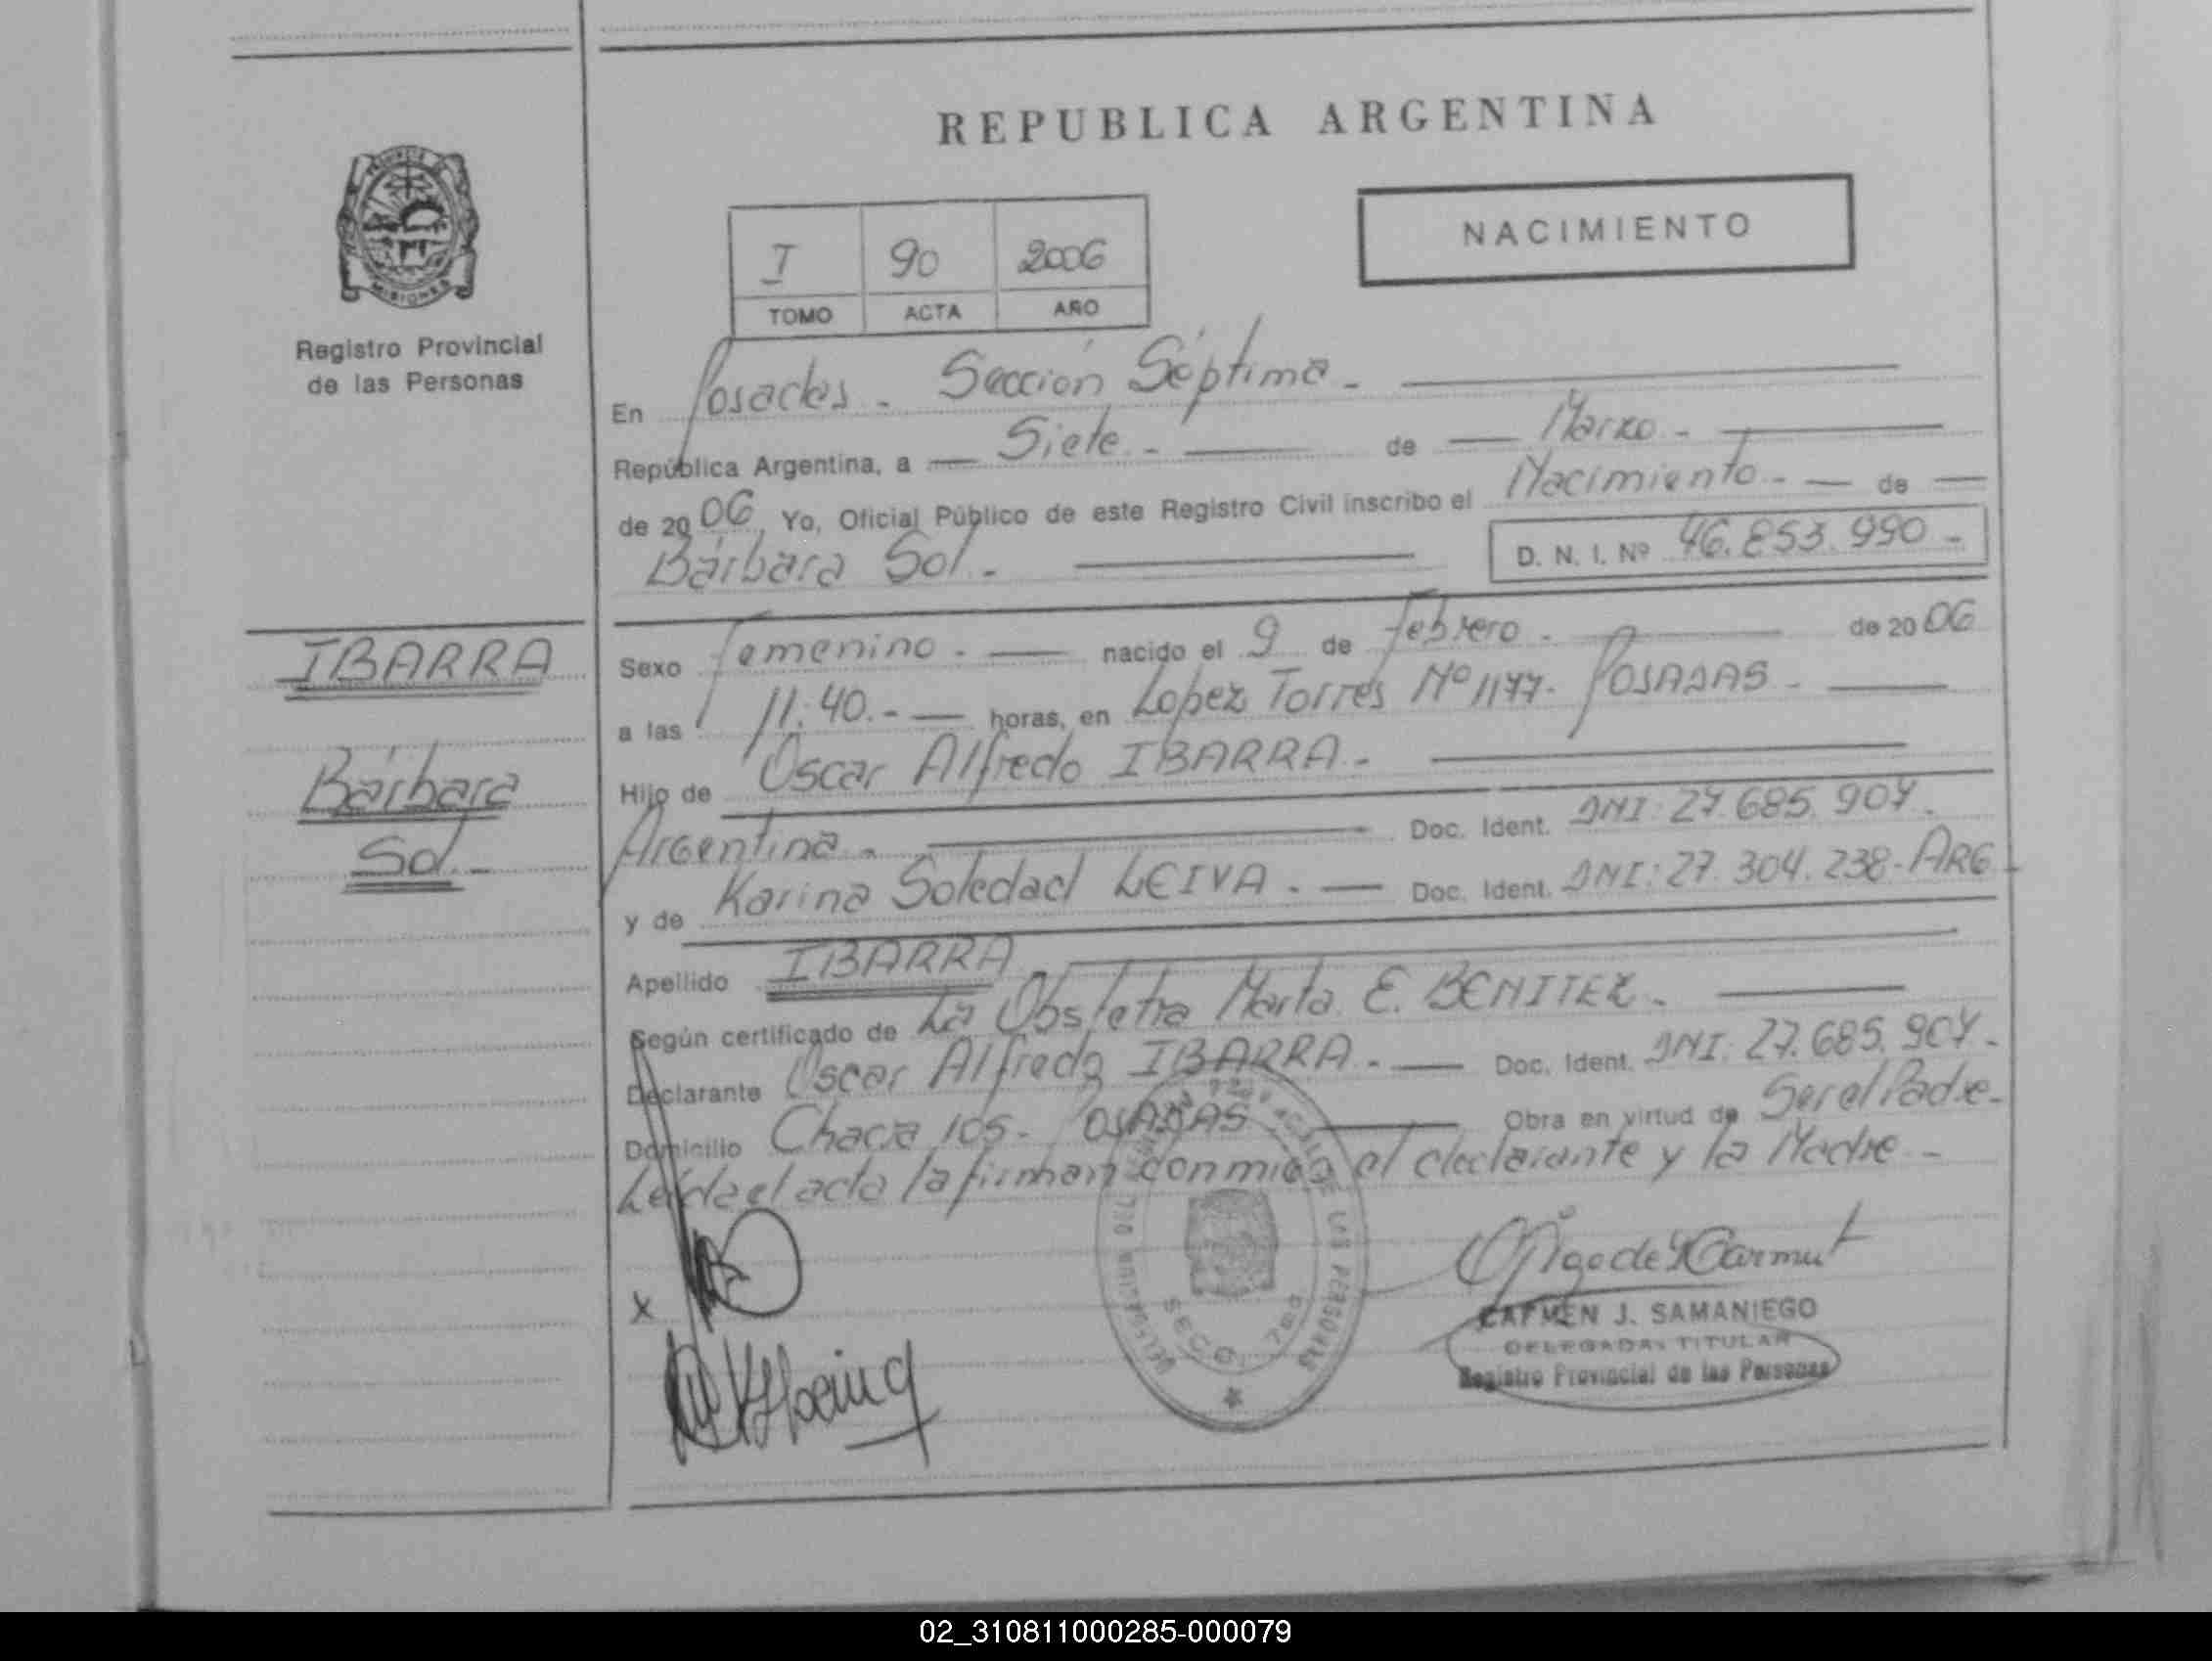 REPUBLICA ARGENTINA
NACIMIENTO
I 90 2006
TOMO ACTA AÑO
MISIONES
Registro Provincial
de las Personas
En Posadas - Sección Séptima -
República Argentina, a Siete - de Marzo -
de 2006 Yo, Oficial Público de este Registro Civil inscribo el Nacimiento - de
Bárbara Sol -
D. N. I. Nº 46.853.990 -
IBARRA
Bárbara
Sol -
Sexo Femenino - nacido el 9 de febrero - de 2006
a las 11:40.- horas, en Lopez Torres Nº 1177- POSADAS -
Hijo de Oscar Alfredo IBARRA -
Argentina - Doc. Ident. DNI: 27.685.907.
y de Karina Soledad LEIVA. - Doc. Ident. DNI: 27.304.238-ARG
Apellido IBARRA
Según certificado de La Obstetra Marta E. BENITEZ -
Declarante Oscar Alfredo IBARRA - Doc. Ident. DNI: 27.685.907-
Domicilio Chacra 105- POSADAS Obra en virtud de Ser el Padre-
Leída el acta la firman conmigo el declarante y la Madre -
X
SECC. 7ma
CARMEN J. SAMANIEGO
DELEGADA TITULAR
Registro Provincial de las Personas
02_310811000285-000079